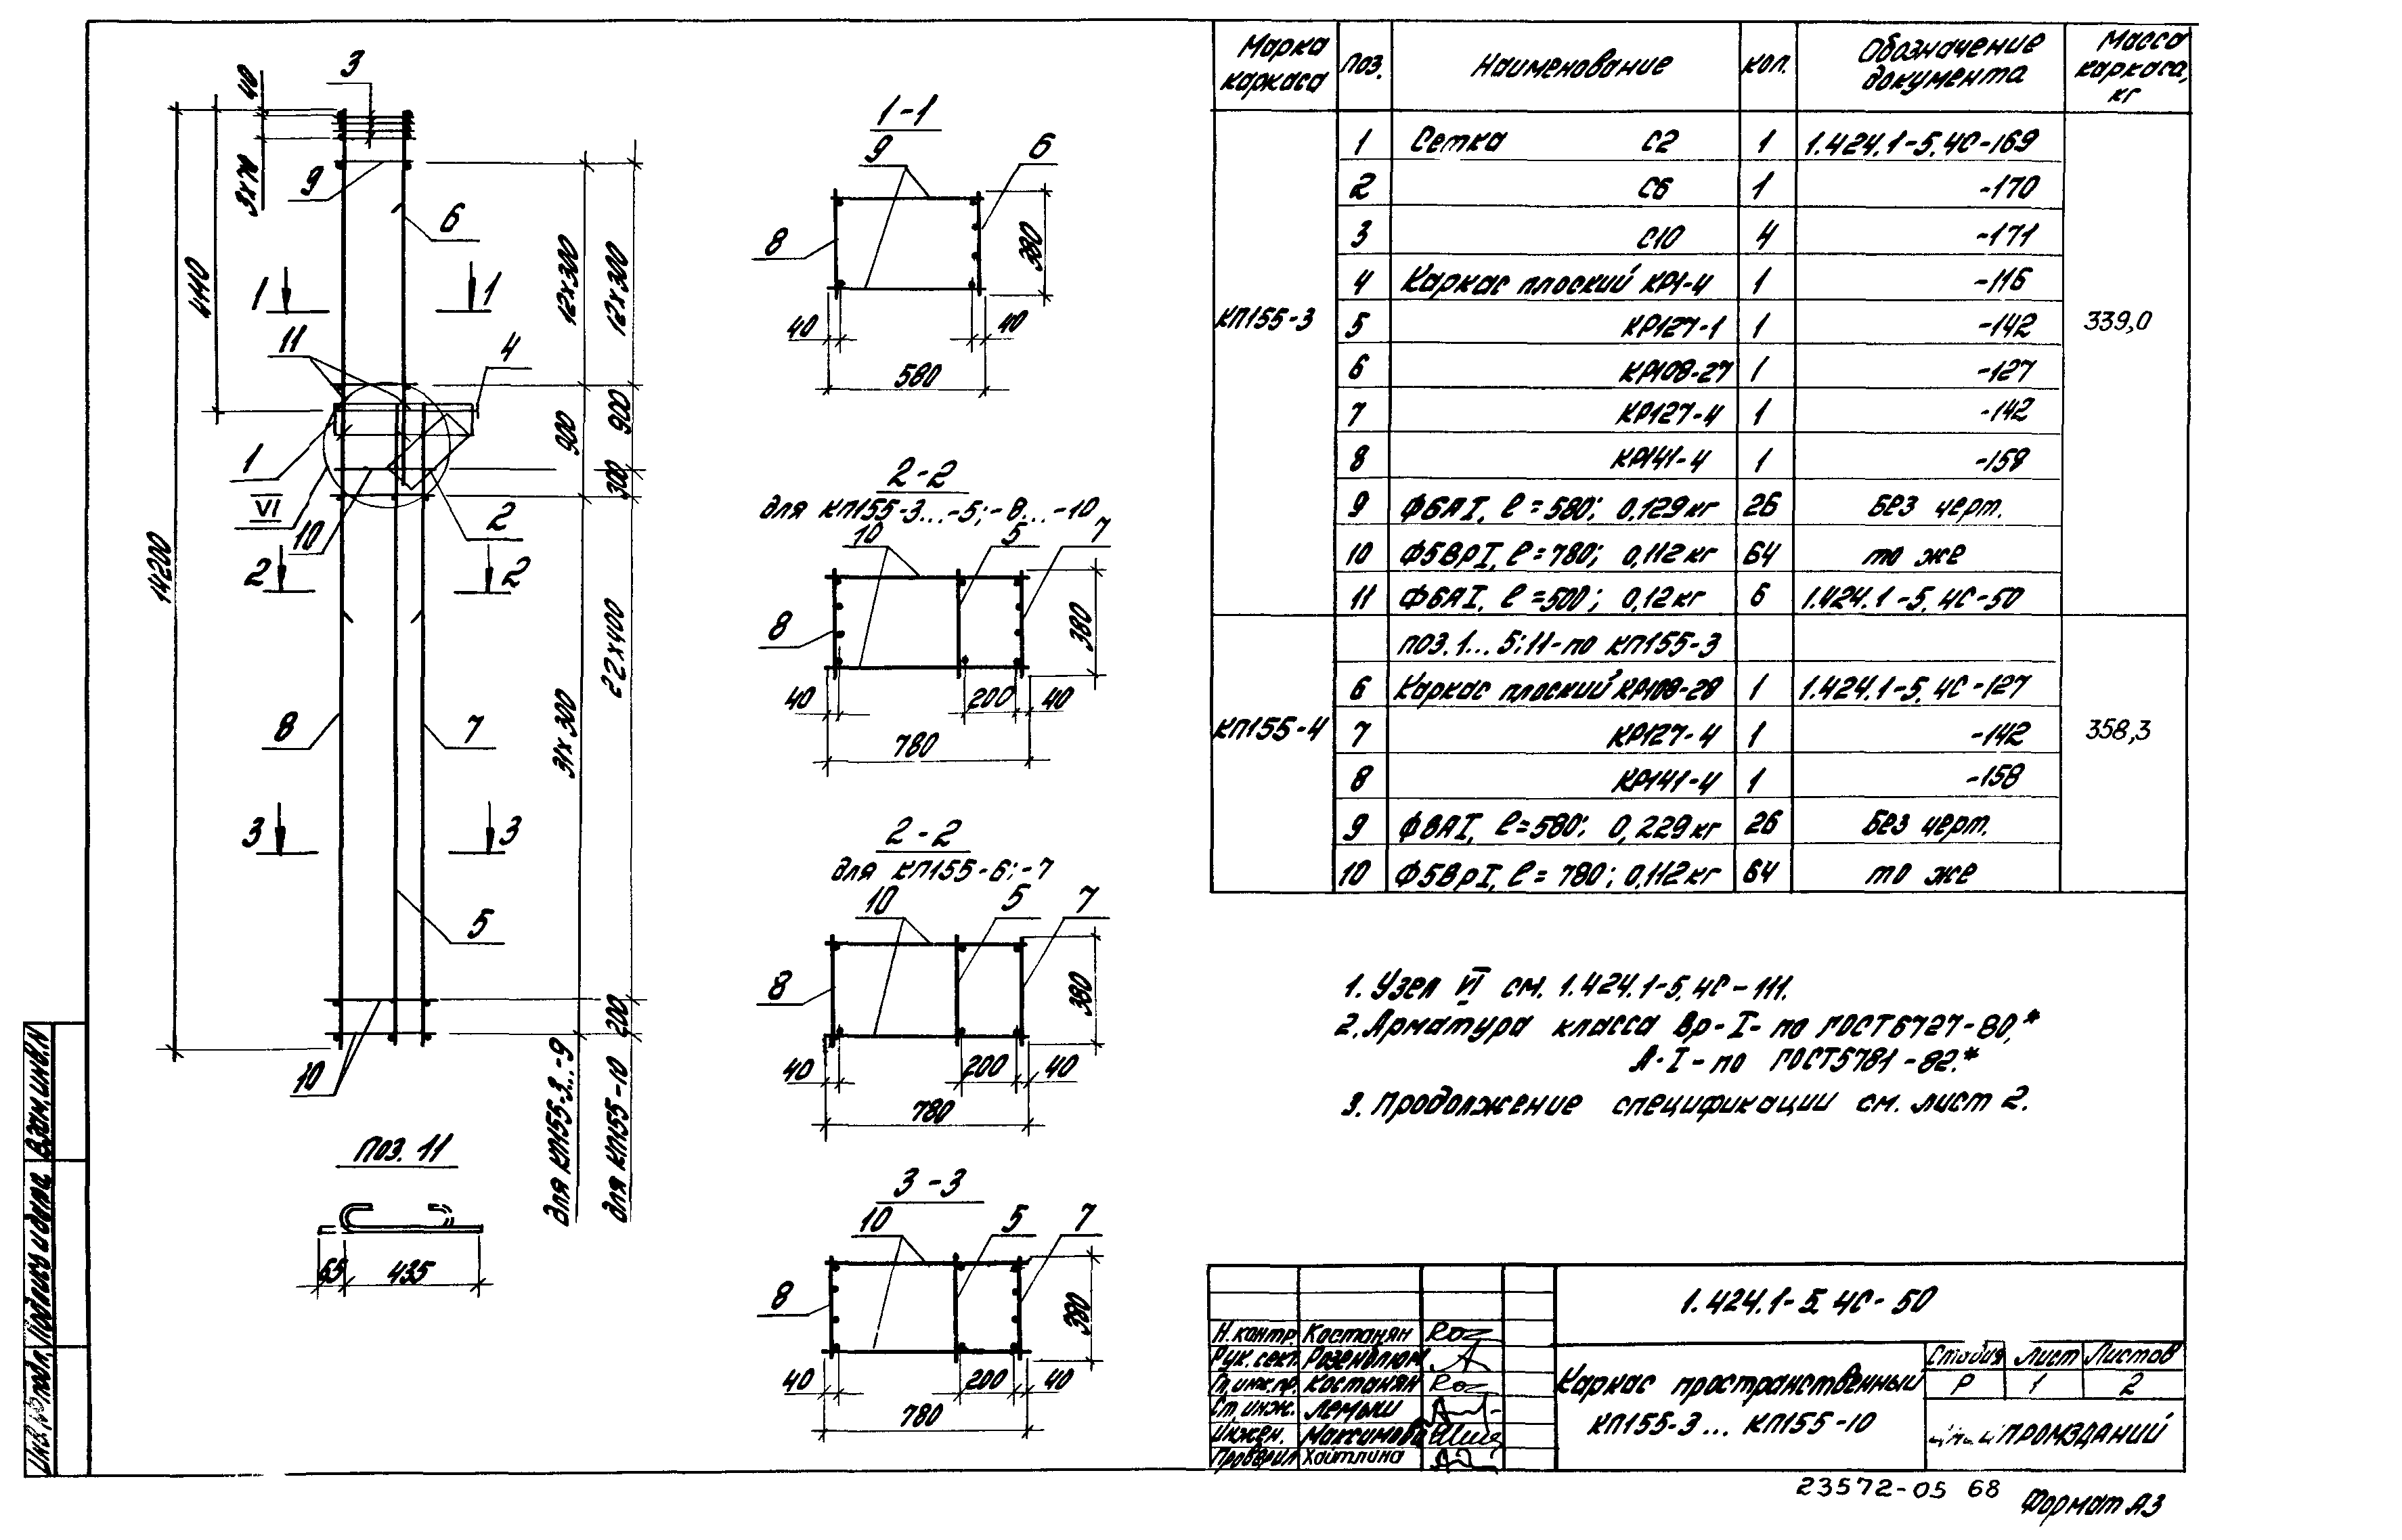 3
40
3х70
9
6
4140
1 1
12х300
12х300
11
4
900
900
300
1
VI
10
2
2 2
14200
22х400
31х300
8
7
3 3
5
200
10
для КП155-3...-9
для КП155-10
Поз. 11
65 435
1-1
9
6
8
380
40 40
580
2-2
для КП155-3...-5; -8...-10
10 5 7
8
380
40 200 40
780
2-2
для КП155-6; -7
10 5 7
8
380
40 200 40
780
3-3
10 5 7
8
380
40 200 40
780
Марка каркаса Поз. Наименование Кол. Обозначение документа Масса каркаса, кг
КП155-3 339,0
1 Сетка С2 1 1.424.1-5.4С-169
2 С6 1 -170
3 С10 4 -171
4 Каркас плоский КР1-4 1 -116
5 КР127-1 1 -142
6 КР108-27 1 -127
7 КР127-4 1 -142
8 КР141-4 1 -158
9 Ф6АI, ℓ=580; 0,129кг 26 Без черт.
10 Ф5ВрI, ℓ=780; 0,112кг 64 то же
11 Ф6АI, ℓ=500; 0,12кг 6 1.424.1-5.4С-50
КП155-4 358,3
поз. 1...5; 11-по КП155-3
6 Каркас плоский КР108-28 1 1.424.1-5.4С-127
7 КР127-4 1 -142
8 КР141-4 1 -158
9 Ф8АI, ℓ=580; 0,229кг 26 Без черт.
10 Ф5ВрI, ℓ=780; 0,112кг 64 то же
1. Узел VI см. 1.424.1-5.4С-111.
2. Арматура класса Вр-I- по ГОСТ6727-80,*
А-I-по ГОСТ5781-82.*
3. Продолжение спецификации см. лист 2.
1.424.1-5.4С-50
Н.контр. Костанян
Рук.сект. Розенблюм
Гл.инж.пр. Костанян
Ст.инж. Лемыш
Инжен. Максимова
Проверил Хайтлина
Каркас пространственный
КП155-3... КП155-10
Стадия Лист Листов
Р 1 2
ПРОМЗДАНИЙ
23572-05 68
Формат А3
Взам.инв.N
Подпись и дата
Инв.№ подл.